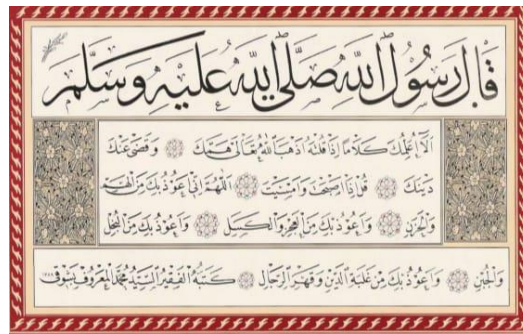 قَالَ رَسُولُ اللهِ صَلَّى اللهُ عَلَيْهِ وَسَلَّمَ
أَلَا أُعَلِّمُكَ كَلَامًا إِذَا قُلْتَهُ أَذْهَبَ اللهُ تَعَالَى هَمَّكَ وَقَضَى عَنْكَ
دَيْنَكَ قُلْ إِذَا أَصْبَحْتَ وَأَمْسَيْتَ اَللّٰهُمَّ إِنِّي أَعُوذُ بِكَ مِنَ الْهَمِّ
وَالْحُزْنِ وَأَعُوذُ بِكَ مِنَ الْعَجْزِ وَالْكَسَلِ وَأَعُوذُ بِكَ مِنَ الْبُخْلِ
وَالْجُبْنِ وَأَعُوذُ بِكَ مِنْ غَلَبَةِ الدَّيْنِ وَقَهْرِ الرِّجَالِ كَتَبَهُ الْفَقِيرُ السَّيِّدُ مُحَمَّدُ الْمَعْرُوفُ بِشَوْقِي